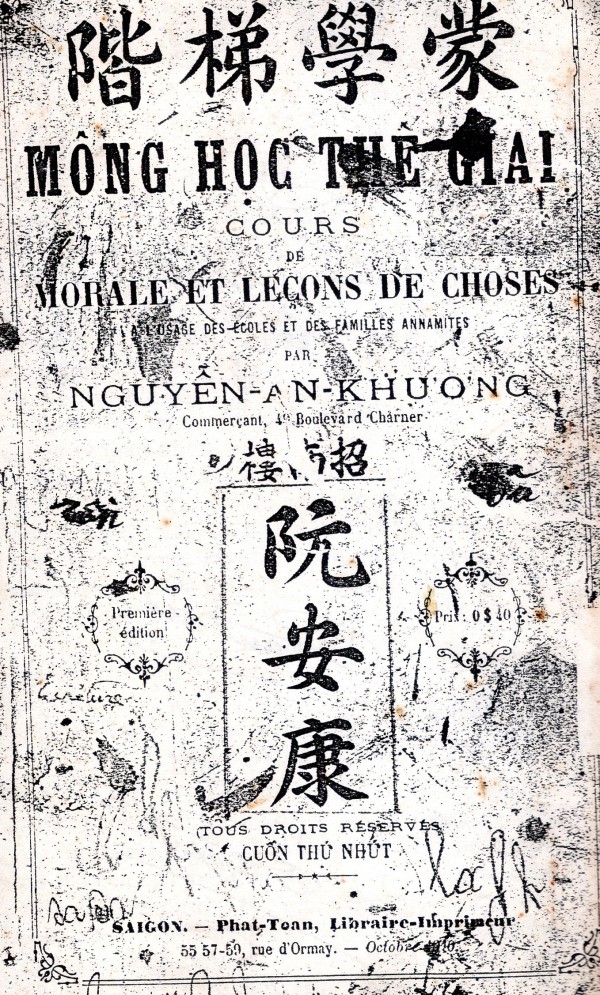 蒙學梯階
MÔNG HỌC THÊ GIAI
COURS
DE
MORALE ET LEÇONS DE CHOSES
A L'USAGE DES ÉCOLES ET DES FAMILLES ANNAMITES
PAR
NGUYỄN-AN-KHƯƠNG
Commerçant, Boulevard Charner
招 樓
阮安康
Première édition
Prix: 0 $ 40
TOUS DROITS RÉSERVÉS
CUỐN THỨ NHỨT
SAIGON. — Phat-Toan, Libraire-Imprimeur
55 57-59, rue d'Ormay. — Octobre